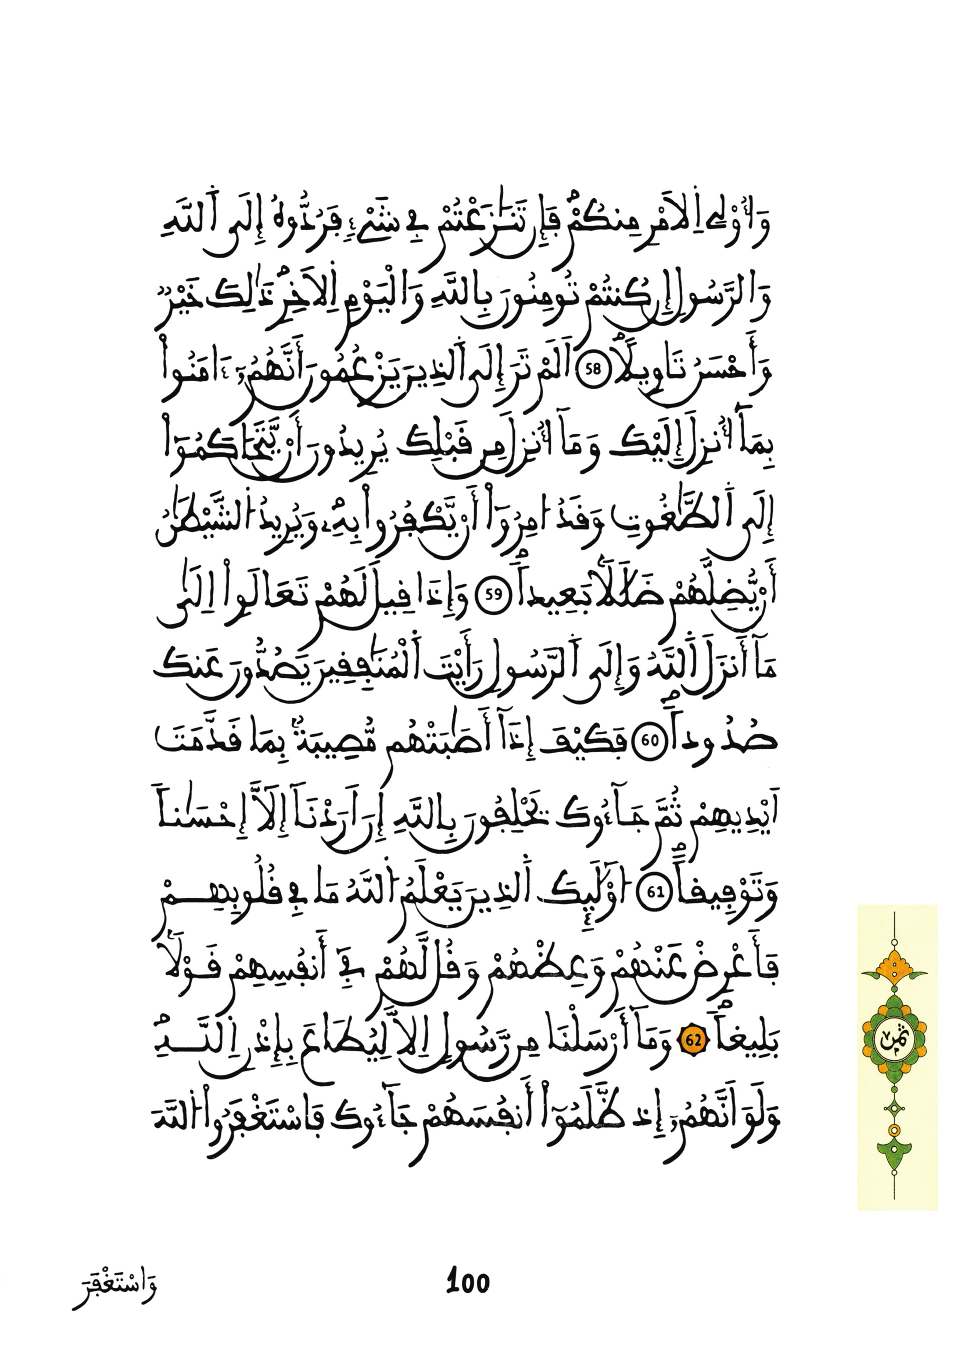 وَأُوْلِے اِ۬لَامْرِ مِنكُمْۖ فَإِن تَنَٰزَعْتُمْ فِے شَےْءٖ فَرُدُّوهُ إِلَي اَ۬للَّهِ
وَالرَّسُولِ إِن كُنتُمْ تُومِنُونَ بِاللَّهِ وَالْيَوْمِ اِ۬لَاخِرِۖ ذَٰلِكَ خَيْرٞ
وَأَحْسَنُ تَاوِيلًاۖ 58 اَلَمْ تَرَ إِلَي اَ۬لذِينَ يَزْعُمُونَ أَنَّهُمُۥٓ ءَامَنُواْ
بِمَآ أُنزِلَ إِلَيْكَ وَمَآ أُنزِلَ مِن قَبْلِكَ يُرِيدُونَ أَنْ يَّتَحَاكَمُوٓاْ
إِلَي اَ۬لطَّٰغُوتِ وَقَدُ ا۟مِرُوٓاْ أَنْ يَّكْفُرُواْ بِهِۦۖ وَيُرِيدُ اُ۬لشَّيْطَٰنُ
أَنْ يُّضِلَّهُمْ ضَلَٰلَاۢ بَعِيداٗۖ 59 وَإِذَا قِيلَ لَهُمْ تَعَالَوِاْ اِلَيٰ
مَآ أَنزَلَ اَ۬للَّهُ وَإِلَي اَ۬لرَّسُولِ رَأَيْتَ اَ۬لْمُنَٰفِقِينَ يَصُدُّونَ عَنكَ
صُدُوداٗۖ 60 فَكَيْفَ إِذَآ أَصَٰبَتْهُم مُّصِيبَةُۢ بِمَا قَدَّمَتَ
اَيْدِيهِمْ ثُمَّ جَآءُوكَ يَحْلِفُونَ بِاللَّهِ إِنَ اَرَدْنَآ إِلَّآ إِحْسَٰناٗ
وَتَوْفِيقاًۖ 61 ا۟وْلَٰٓئِكَ اَ۬لذِينَ يَعْلَمُ اُ۬للَّهُ مَا فِے قُلُوبِهِمْ
فَأَعْرِضْ عَنْهُمْ وَعِظْهُمْ وَقُل لَّهُمْ فِےٓ أَنفُسِهِمْ قَوْلَاۢ
بَلِيغاٗۖ 62 وَمَآ أَرْسَلْنَا مِن رَّسُولٍ اِلَّا لِيُطَاعَ بِإِذْنِ اِ۬للَّهِۖ
وَلَوَ اَنَّهُمُۥٓ إِذ ظَّلَمُوٓاْ أَنفُسَهُمْ جَآءُوكَ فَاسْتَغْفَرُواْ اُ۬للَّهَ
ثمن
وَاسْتَغْفَرَ
100